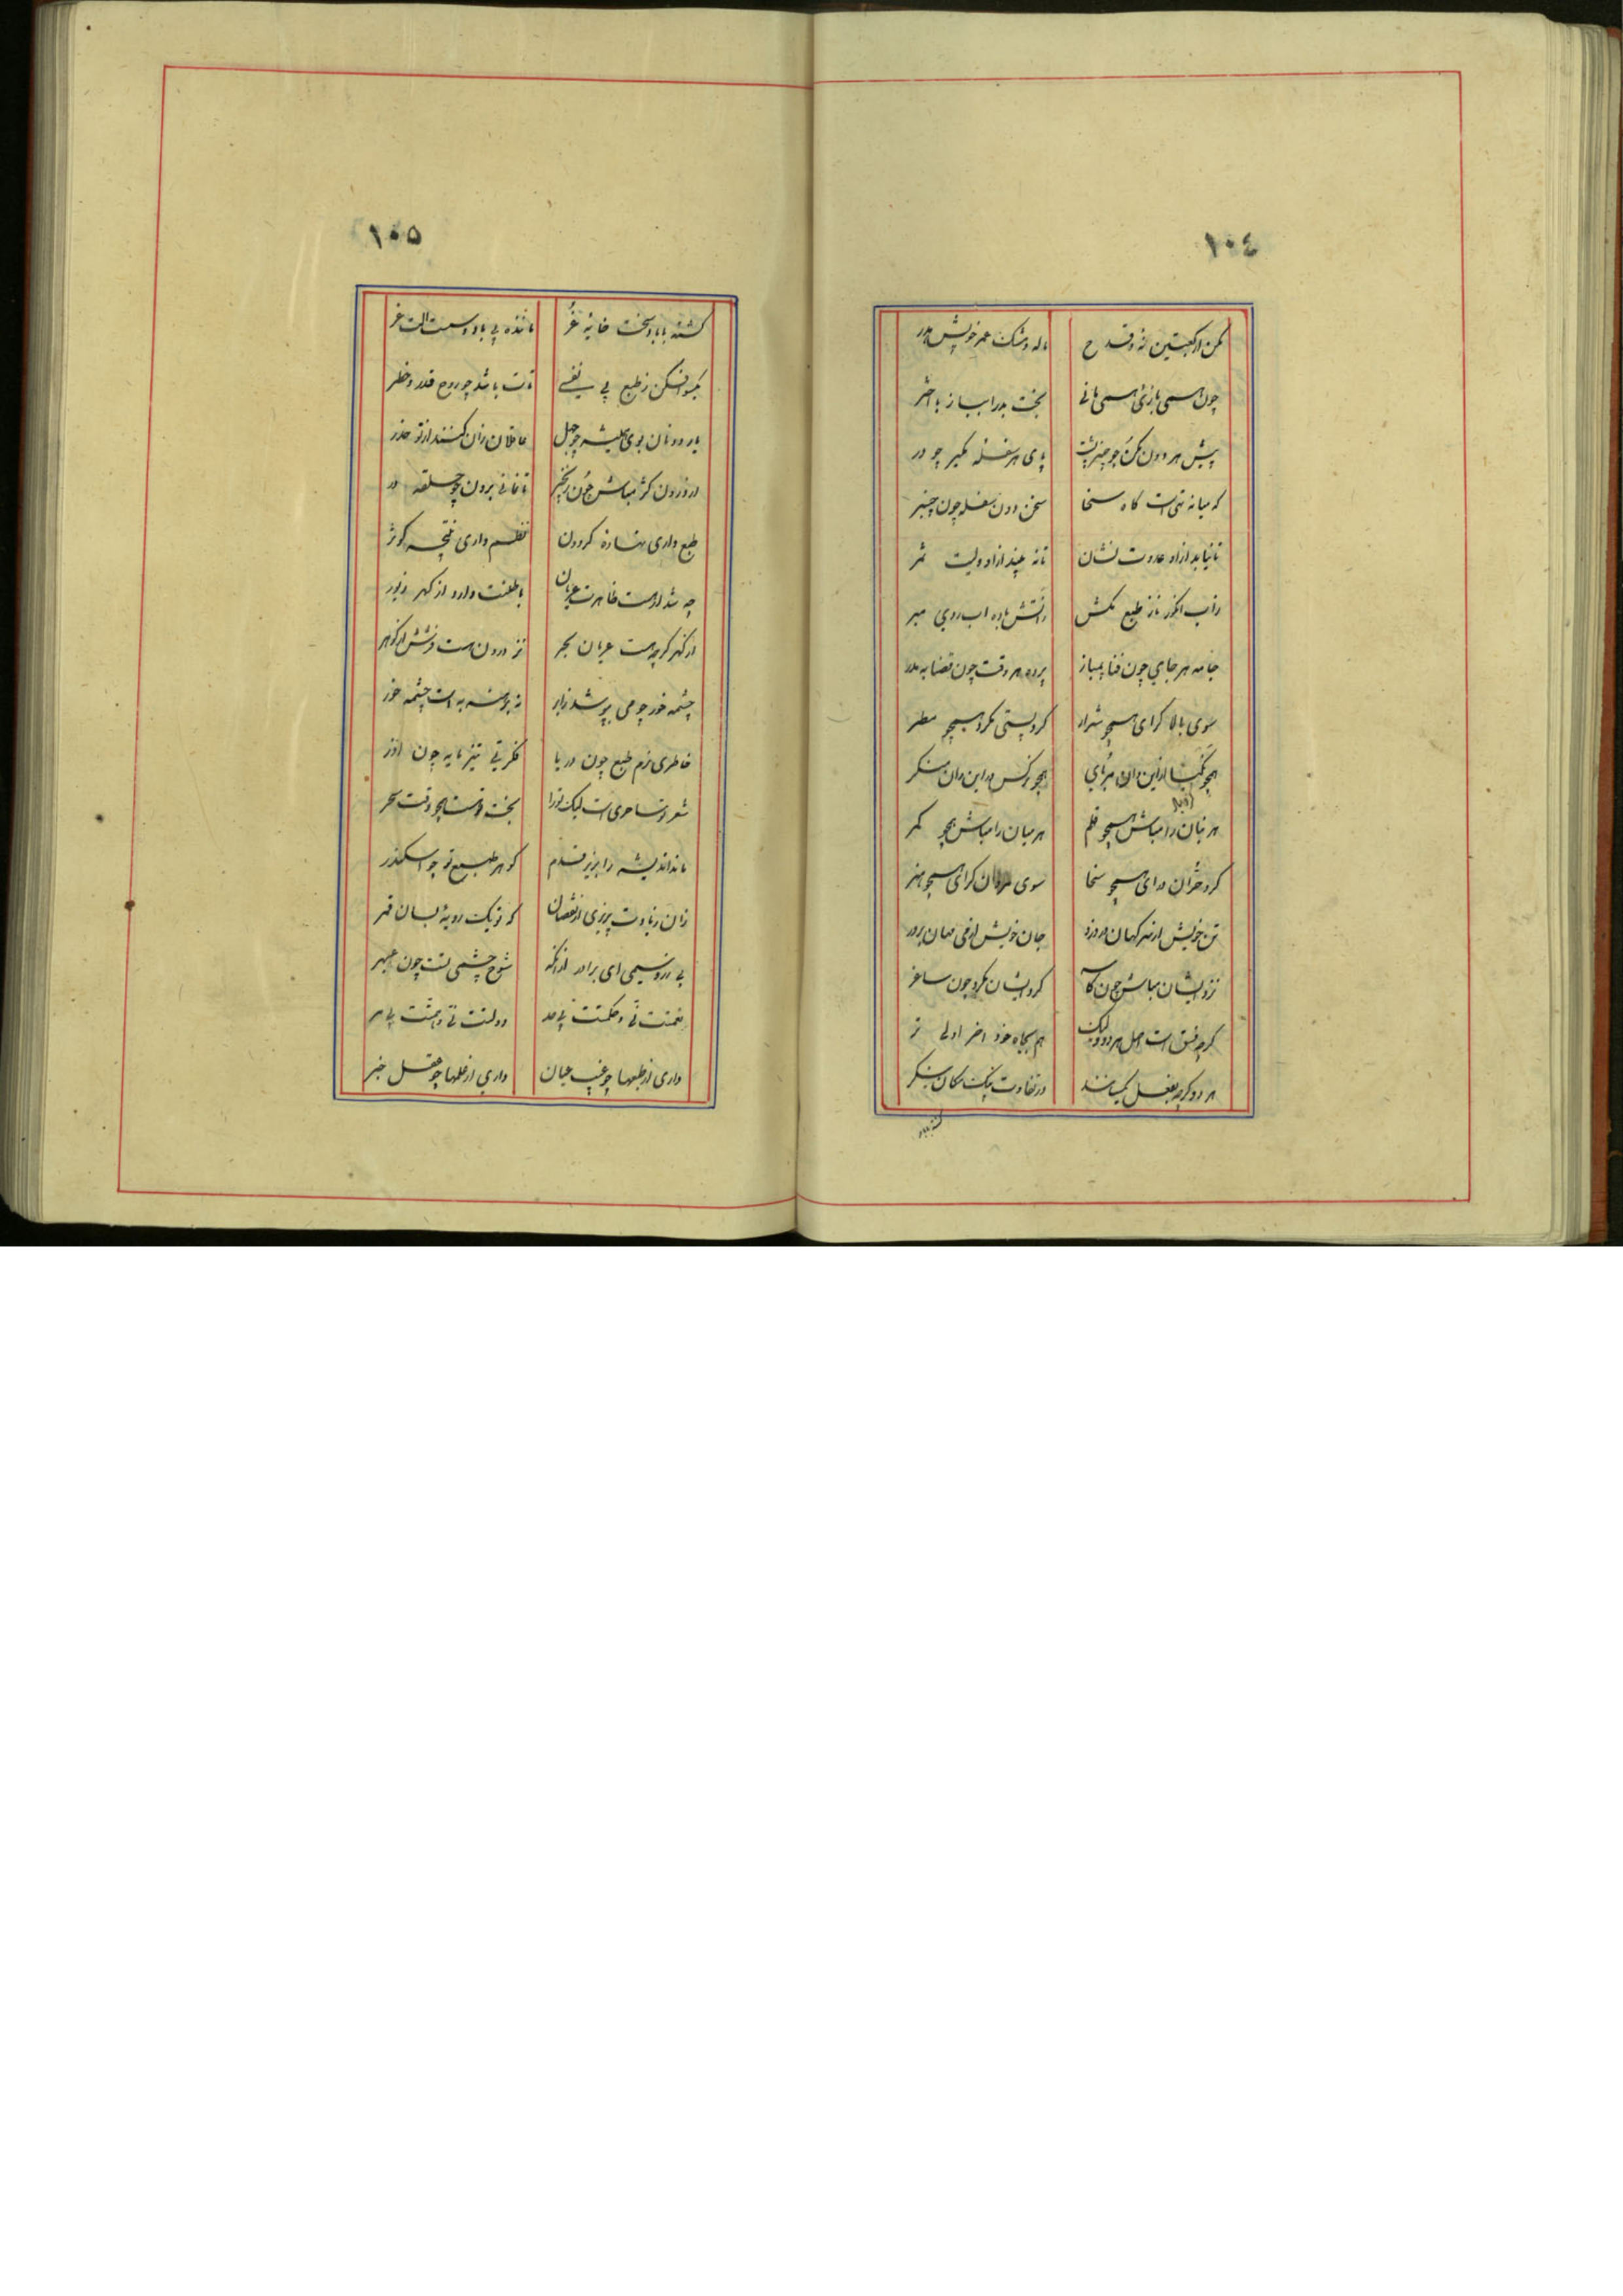 ١٠٤
مکن از کعبتین نرد و قدح
ماله و مشک عمر خویش هدر
چون همی بازی همی مانی
بخت بد را بساز با اختر
پیش هر دون مکن چو چنبر پشت
پای هر سفله مگیر چو در
که میانه تهی است گاه سخا
سخن دون سفله چون چنبر
تا نیابد از او عدوت نشان
تا نه چیند از او ولیت ثمر
زاب انکور نار طبع مکش
زاتش باده اب روی مبر
جامه هر جای چون فنا
پرده هر وقت چون قضا بمدر
سوی بالا کرای همچو شرار
کرد پستی مکرد همچو مطر
همچو
همچو نرکس در این و ان منکر
هر بنان را مباش همچو قلم
هر میان را مباش همچو کمر
کرد حران درای همچو سخا
سوی مردان کرای همچو هنر
تن خویش از
جان خویش از
نزد ایشان مباش چون کاسه
کرد ایشان مکرد چون ساغر
کرچه فسق است اصل هر دو ولیک
هم بجاه خود اخر اولی تر
هر دو کرچه بفعل یکسانند
در تفاوت بیک مکان منکر
کشته بباد
١٠٥
کشته با باد سخت خانه غر
مانده بی باد و سست الت غر
یکسو افکن ز طبع بی نفسی
تات باشد چو روح قدر و خطر
یار دونان بوی همیشه چو جهل
عاقلان زان کنند از تو حذر
از درون کژ مباش چون زنجیر
تا نمانی برون چو حلقه در
طبع داری ستاره کردون
نظم داری نتیجه کوثر
چه شد ار هست ظاهرت عریان
باطنت دارد از کهر زیور
از کهر کرچه هست عریان بحر
تر درون هست فرشش از کوهر
چشمه خور چو می بپوشد ابر
نه برهنه به است چشمه خور
خاطری نرم طبع چون دریا
فکرتی تیز مایه چون اذر
شعر تو ساحری است لیک تو را
بخت خفته است همچو وقت سحر
ماند اندیشه را بزیر قدم
کوهر طبع تو چو اسکندر
زان زیادت پذیری از نقصان
که تو یک رویه بسان قمر
بی ازو سیمی ای برادر ازانکه
شوخ چشمی نیت چون عبهر
نعمتت نی و حکمتت بی حد
دولتت نی و دانشت بی مر
داری از طبعها چو غیب عیان
داری از علمها چو عقل خبر